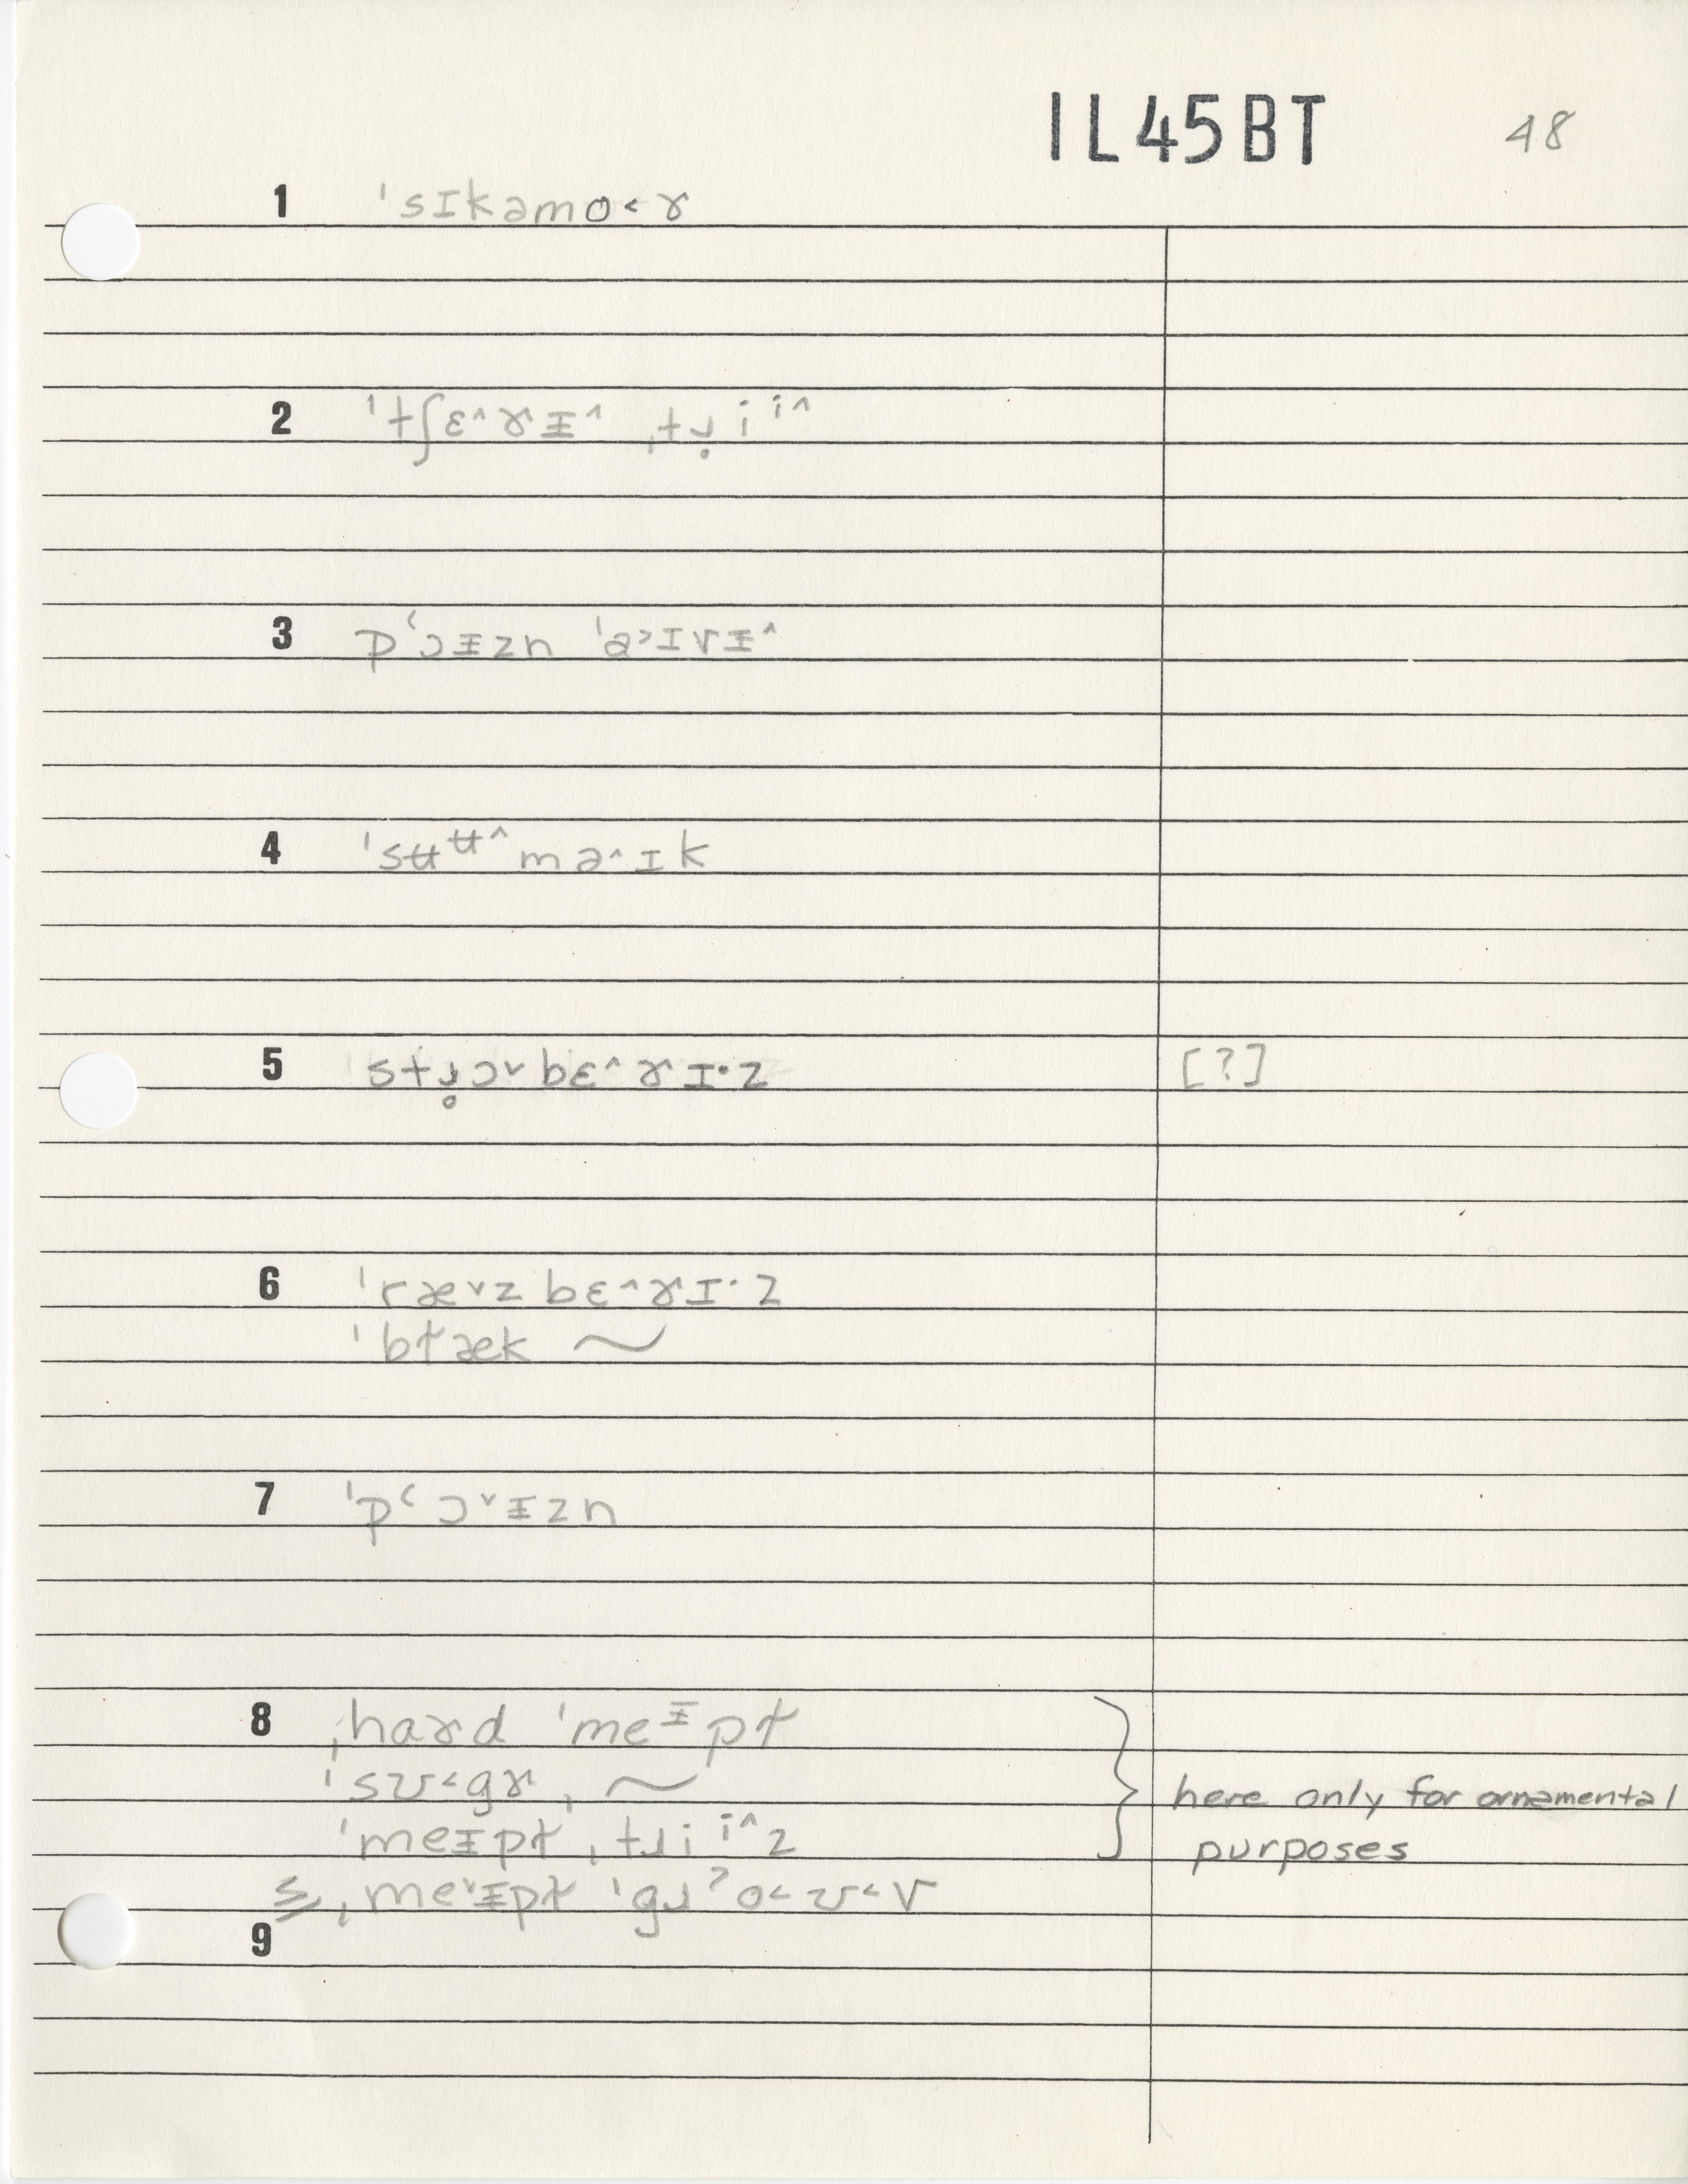 IL45BT 48
1 ˈsɪkəmo˂ɚ
2 ˈtʃɛ˄ɚᵻ˄ ˌtɹ̥iⁱ˄
3 pʻɔᵻzn ˈa˃ɪvᵻ˄
4 ˈsʉᶶ˄mə˄ɪk
5 stɹ̥ɔ˅bɛ˄ɚɪ·z [?]
6 ˈræ˅zbɛ˄ɚɪ·z
ˈbɫæk ~
7 ˈpʻɔ˅ᵻzn
8 ˌhaɚd ˈmeᵻpɫ
ˈsʊ˂gɚ, ~
ˈmeᵻpɫ ˌtɹiⁱ˄z
here only for ornamental
purposes
S, ˌme˅ᵻpɫ ˈgɹˀo˂ʊ˂v
9